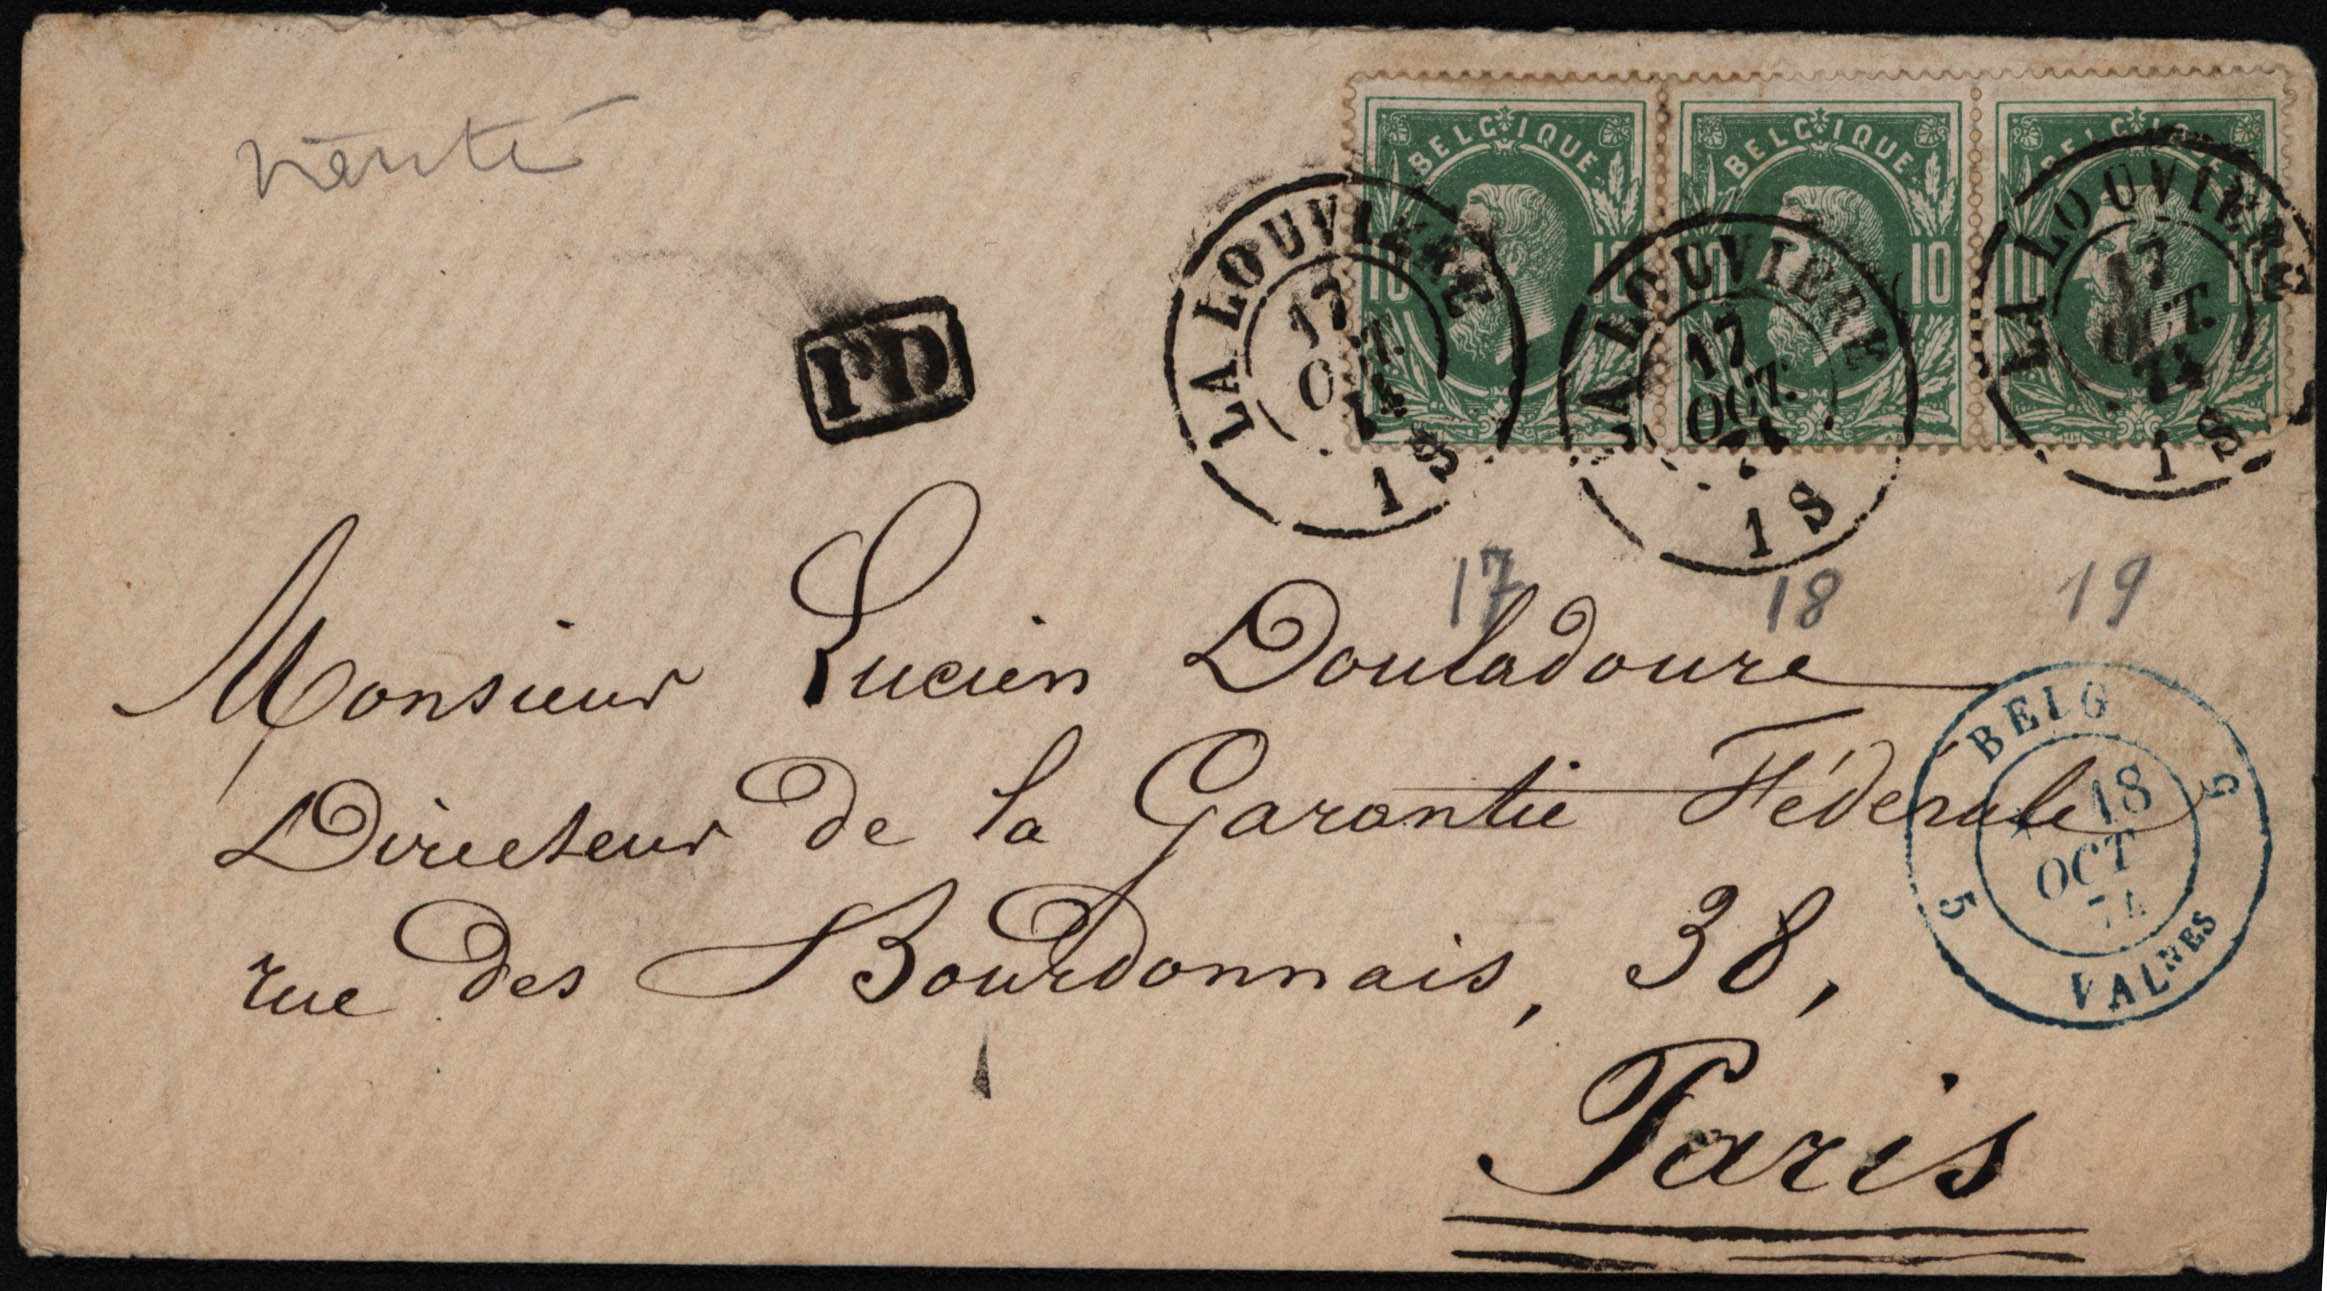 BELGIQUE
10 10
BELGIQUE
10 10
BELGIQUE
10 1
LA LOUVIERE
17
OCT.
74
1 S
LA LOUVIERE
17
OCT.
74
1 S
LA LOUVIERE
17
OCT.
74
1 S
PD
17 18 19
Monsieur Lucien Douladoure
Directeur de la Garantie Fédérale
rue des Bourdonnais, 38,
Paris
BELG
5 18 5
OCT
74
VALNES